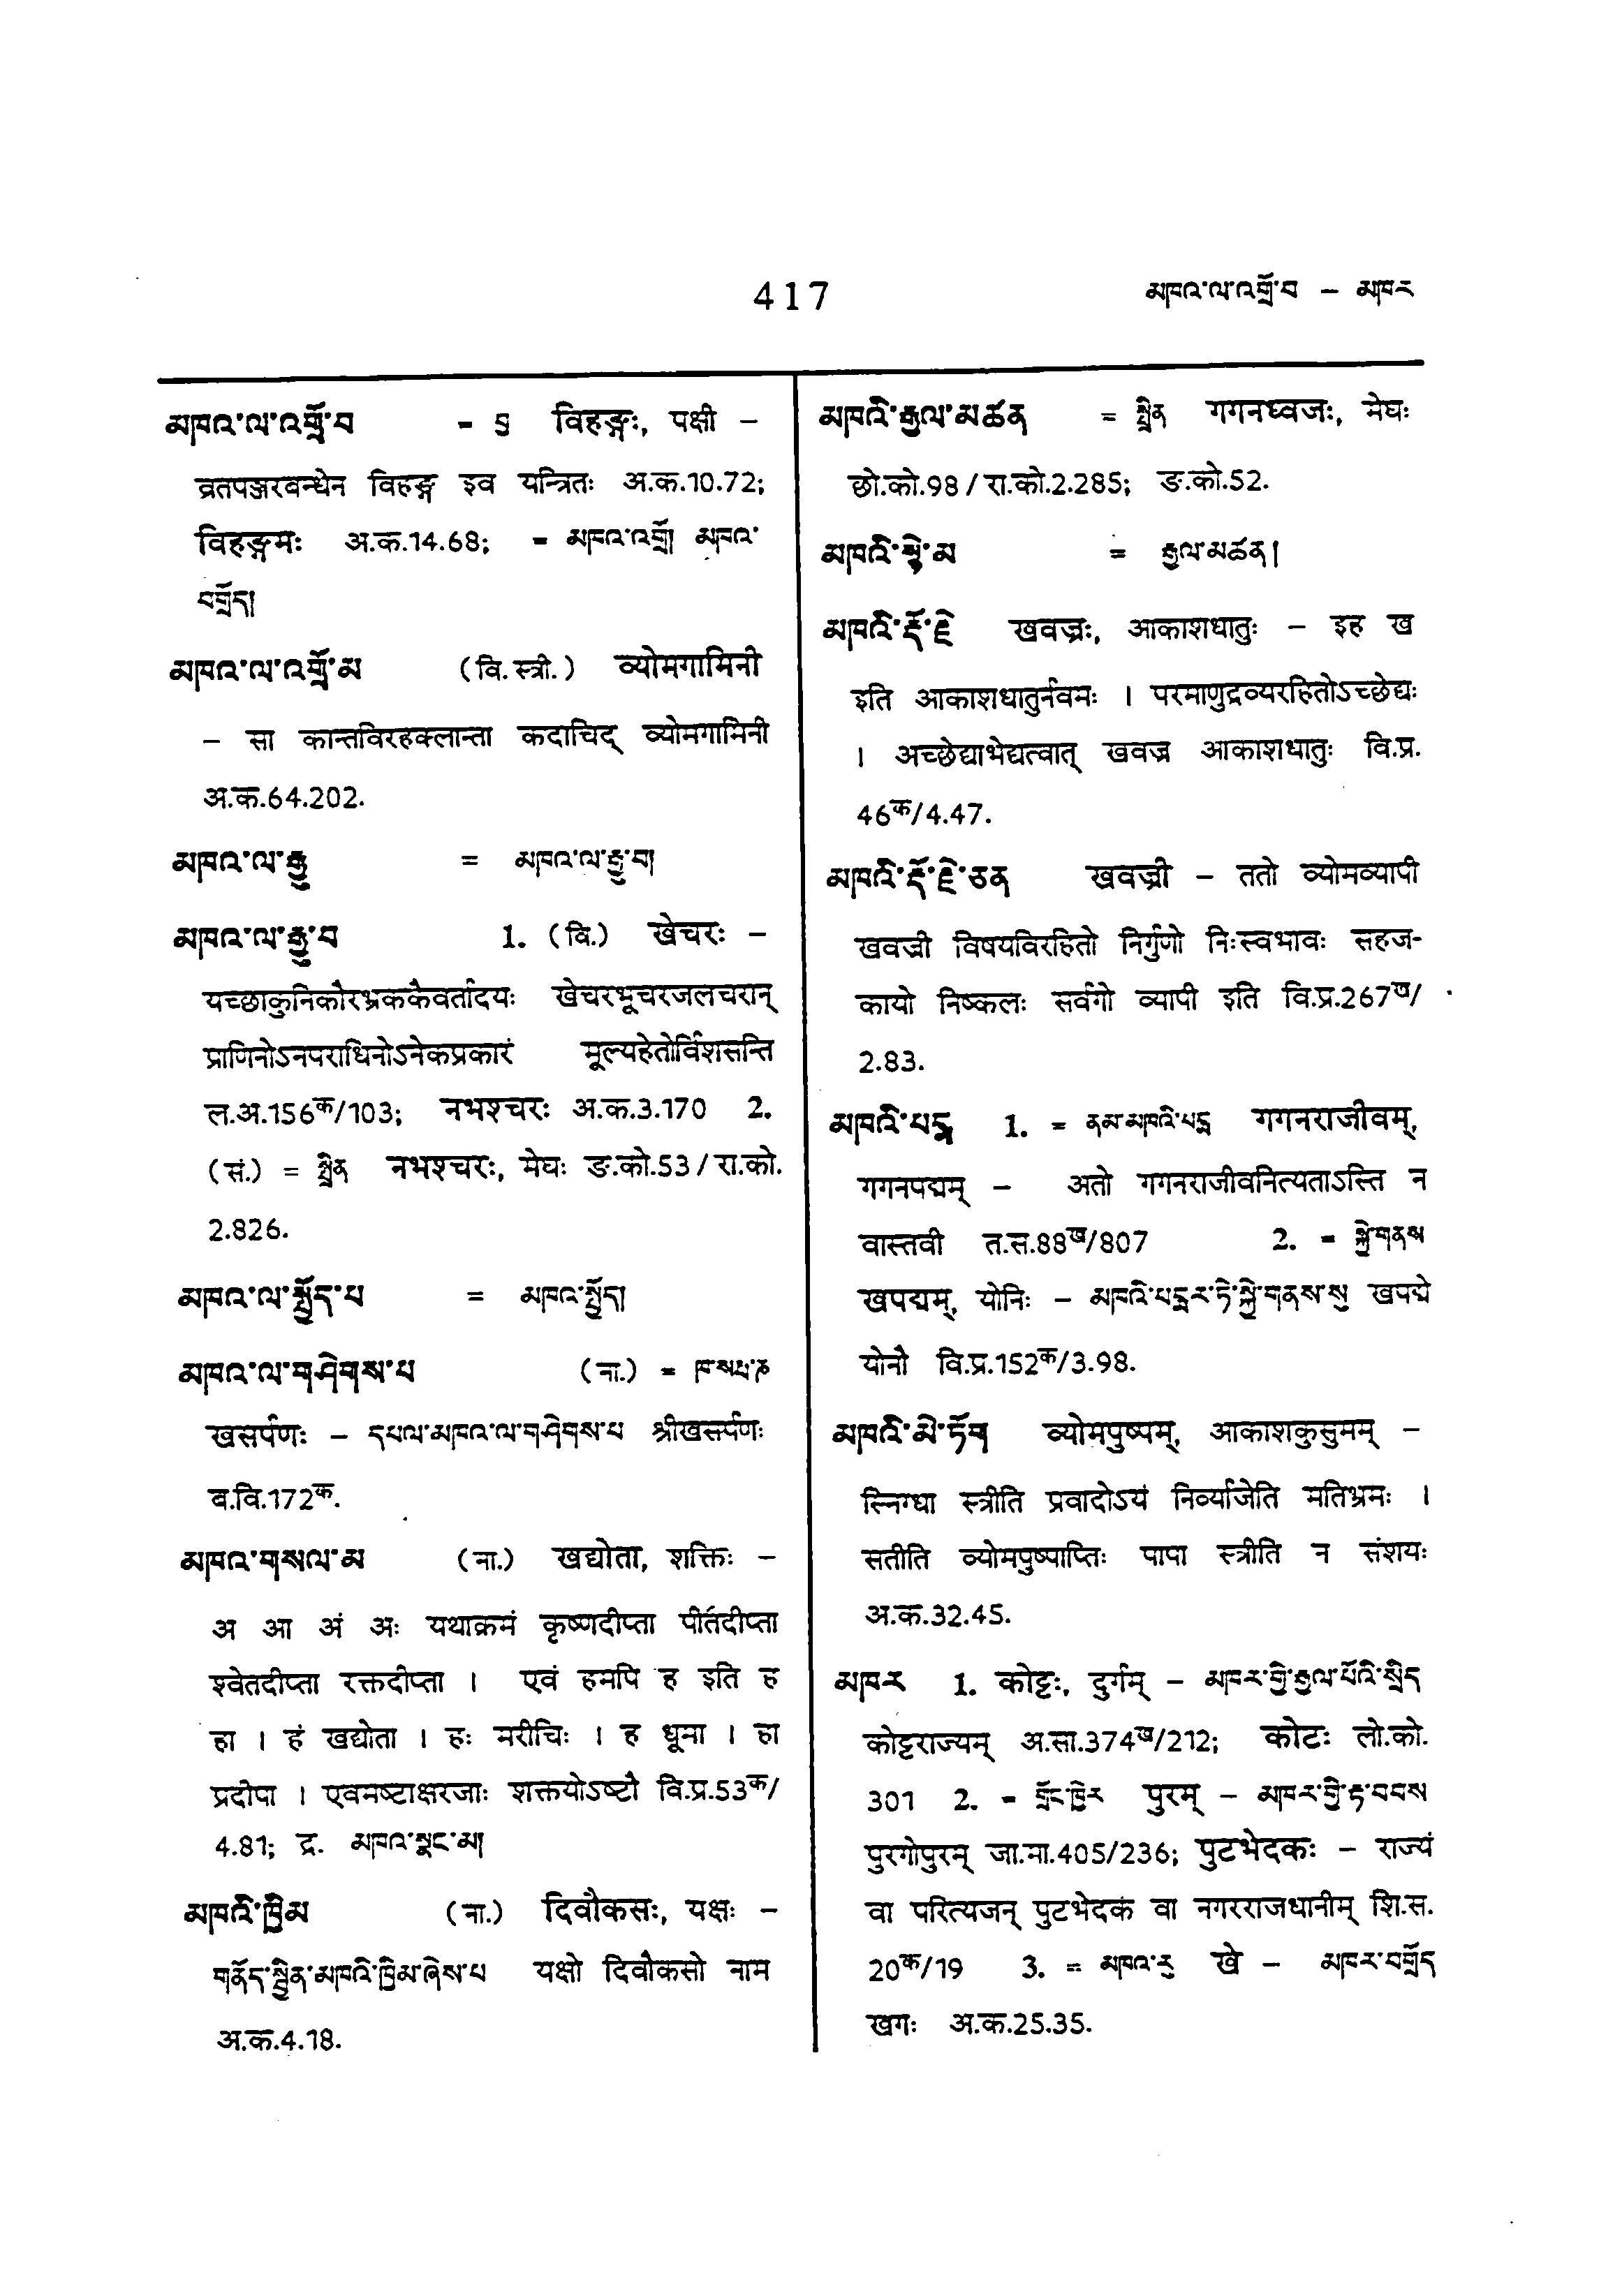 417
མཁའ་ལ་འགྲོ་བ – མཁར
མཁའ་ལ་འགྲོ་བ = བྱ विहङ्गः, पक्षी –
व्रतपञ्जरबन्धेन विहङ्ग इव यन्त्रितः अ.क.10.72;
विहङ्गमः अ.क.14.68; = མཁའ་འགྲོ། མཁའ་
བགྲོད།
མཁའ་ལ་འགྲོ་མ (वि.स्त्री.) व्योमगामिनी
– सा कान्तविरहक्लान्ता कदाचिद् व्योमगामिनी
अ.क.64.202.
མཁའ་ལ་རྒྱུ = མཁའ་ལ་རྒྱུ་བ།
མཁའ་ལ་རྒྱུ་བ 1. (वि.) खेचरः –
यच्छाकुनिकौरभ्रककैवर्तादयः खेचरभूचरजलचरान्
प्राणिनोऽनपराधिनोऽनेकप्रकारं मूल्यहेतोर्विशसन्ति
ल.अ.156क/103; नभश्चरः अ.क.3.170 2.
(सं.) = སྤྲིན नभश्चरः, मेघः ङ.को.53/रा.को.
2.826.
མཁའ་ལ་སྤྱོད་པ = མཁའ་སྤྱོད།
མཁའ་ལ་གཤེགས་པ (ना.) =
खसर्पणः – དཔལ་མཁའ་ལ་གཤེགས་པ श्रीखसर्पणः
ब.वि.172क.
མཁའ་གསལ་མ (ना.) खद्योता, शक्तिः –
अ आ अं अः यथाक्रमं कृष्णदीप्ता पीतदीप्ता
श्वेतदीप्ता रक्तदीप्ता । एवं हमपि ह इति ह
हा । हं खद्योता । हः मरीचिः । ह धूमा । हा
प्रदीपा । एवमष्टाक्षरजाः शक्तयोऽष्टौ वि.प्र.53क/
4.81; द्र. མཁའ་སྣང་མ།
མཁའི་ཁྱིམ (ना.) दिवौकसः, यक्षः –
གནོད་སྦྱིན་མཁའི་ཁྱིམ་ཞེས་པ यक्षो दिवौकसो नाम
अ.क.4.18.
མཁའི་རྒྱལ་མཚན = སྤྲིན गगनध्वजः, मेघः
छो.को.98/रा.को.2.285; ङ.को.52.
མཁའི་སྙེ་མ = རྒྱལ་མཚན།
མཁའི་རྡོ་རྗེ खवज्रः, आकाशधातुः – इह ख
इति आकाशधातुर्नवमः । परमाणुद्रव्यरहितोऽच्छेद्यः
। अच्छेद्याभेद्यत्वात् खवज्र आकाशधातुः वि.प्र.
46क/4.47.
མཁའི་རྡོ་རྗེ་ཅན खवज्री – ततो व्योमव्यापी
खवज्री विषयविरहितो निर्गुणो निःस्वभावः सहज-
कायो निष्कलः सर्वगो व्यापी इति वि.प्र.267ख/
2.83.
མཁའི་པདྨ 1. = ནམ་མཁའི་པདྨ गगनराजीवम्,
गगनपद्मम् – अतो गगनराजीवनित्यताऽस्ति न
वास्तवी त.स.88ख/807 2. = སྐྱེ་གནས
खपद्मम्, योनिः – མཁའི་པདྨར་ཏེ་སྐྱེ་གནས་སུ खपद्मे
योनौ वि.प्र.152क/3.98.
མཁའི་མེ་ཏོག व्योमपुष्पम्, आकाशकुसुमम् –
स्निग्धा स्त्रीति प्रवादोऽयं निर्व्याजेति मतिभ्रमः ।
सतीति व्योमपुष्पाप्तिः पापा स्त्रीति न संशयः
अ.क.32.45.
མཁར 1. कोट्टः, दुर्गम् – མཁར་གྱི་རྒྱལ་པོའི་སྲིད
कोट्टराज्यम् अ.सा.374ख/212; कोटः लो.को.
301 2. = གྲོང་ཁྱེར पुरम् – མཁར་གྱི་རྟ་བབས
पुरगोपुरम् जा.मा.405/236; पुटभेदकः – राज्यं
वा परित्यजन् पुटभेदकं वा नगरराजधानीम् शि.स.
20क/19 3. = མཁའ་རུ खे – མཁར་བགྲོད
खगः अ.क.25.35.